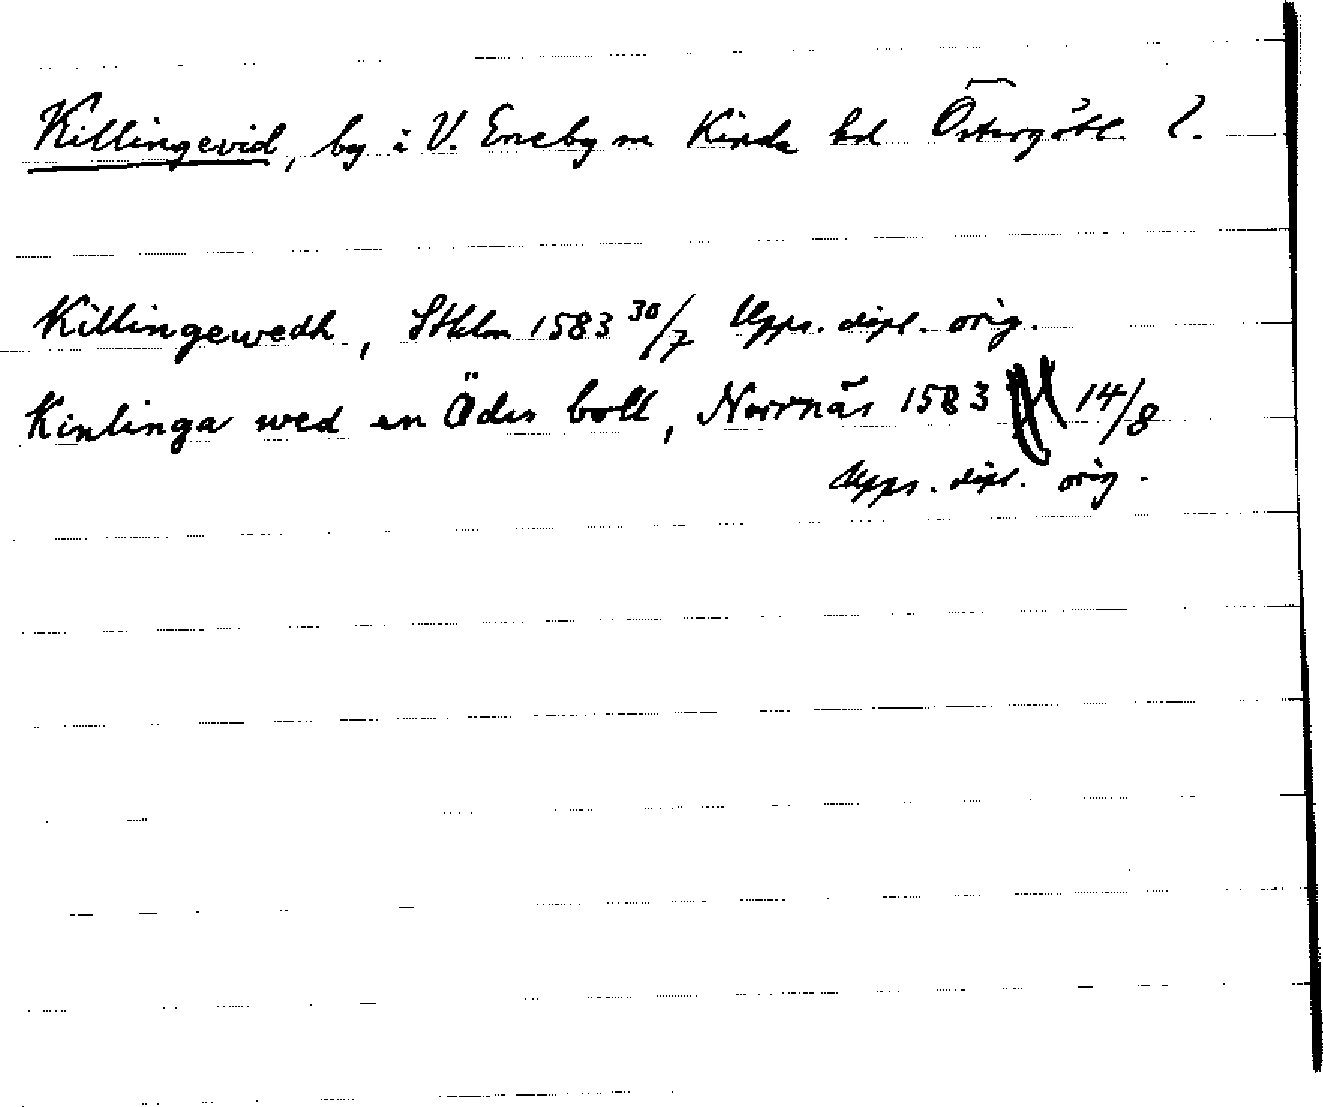 Killingevid, by i V. Eneby sn Kinda hd Östergötl. l.
Killingewedh, Sthlm 1583 30/7 Upps. dipl. orig.
Kinlinga wed en Ödes boll, Norrnäs 1583 14/8
Upps. dipl. orig.